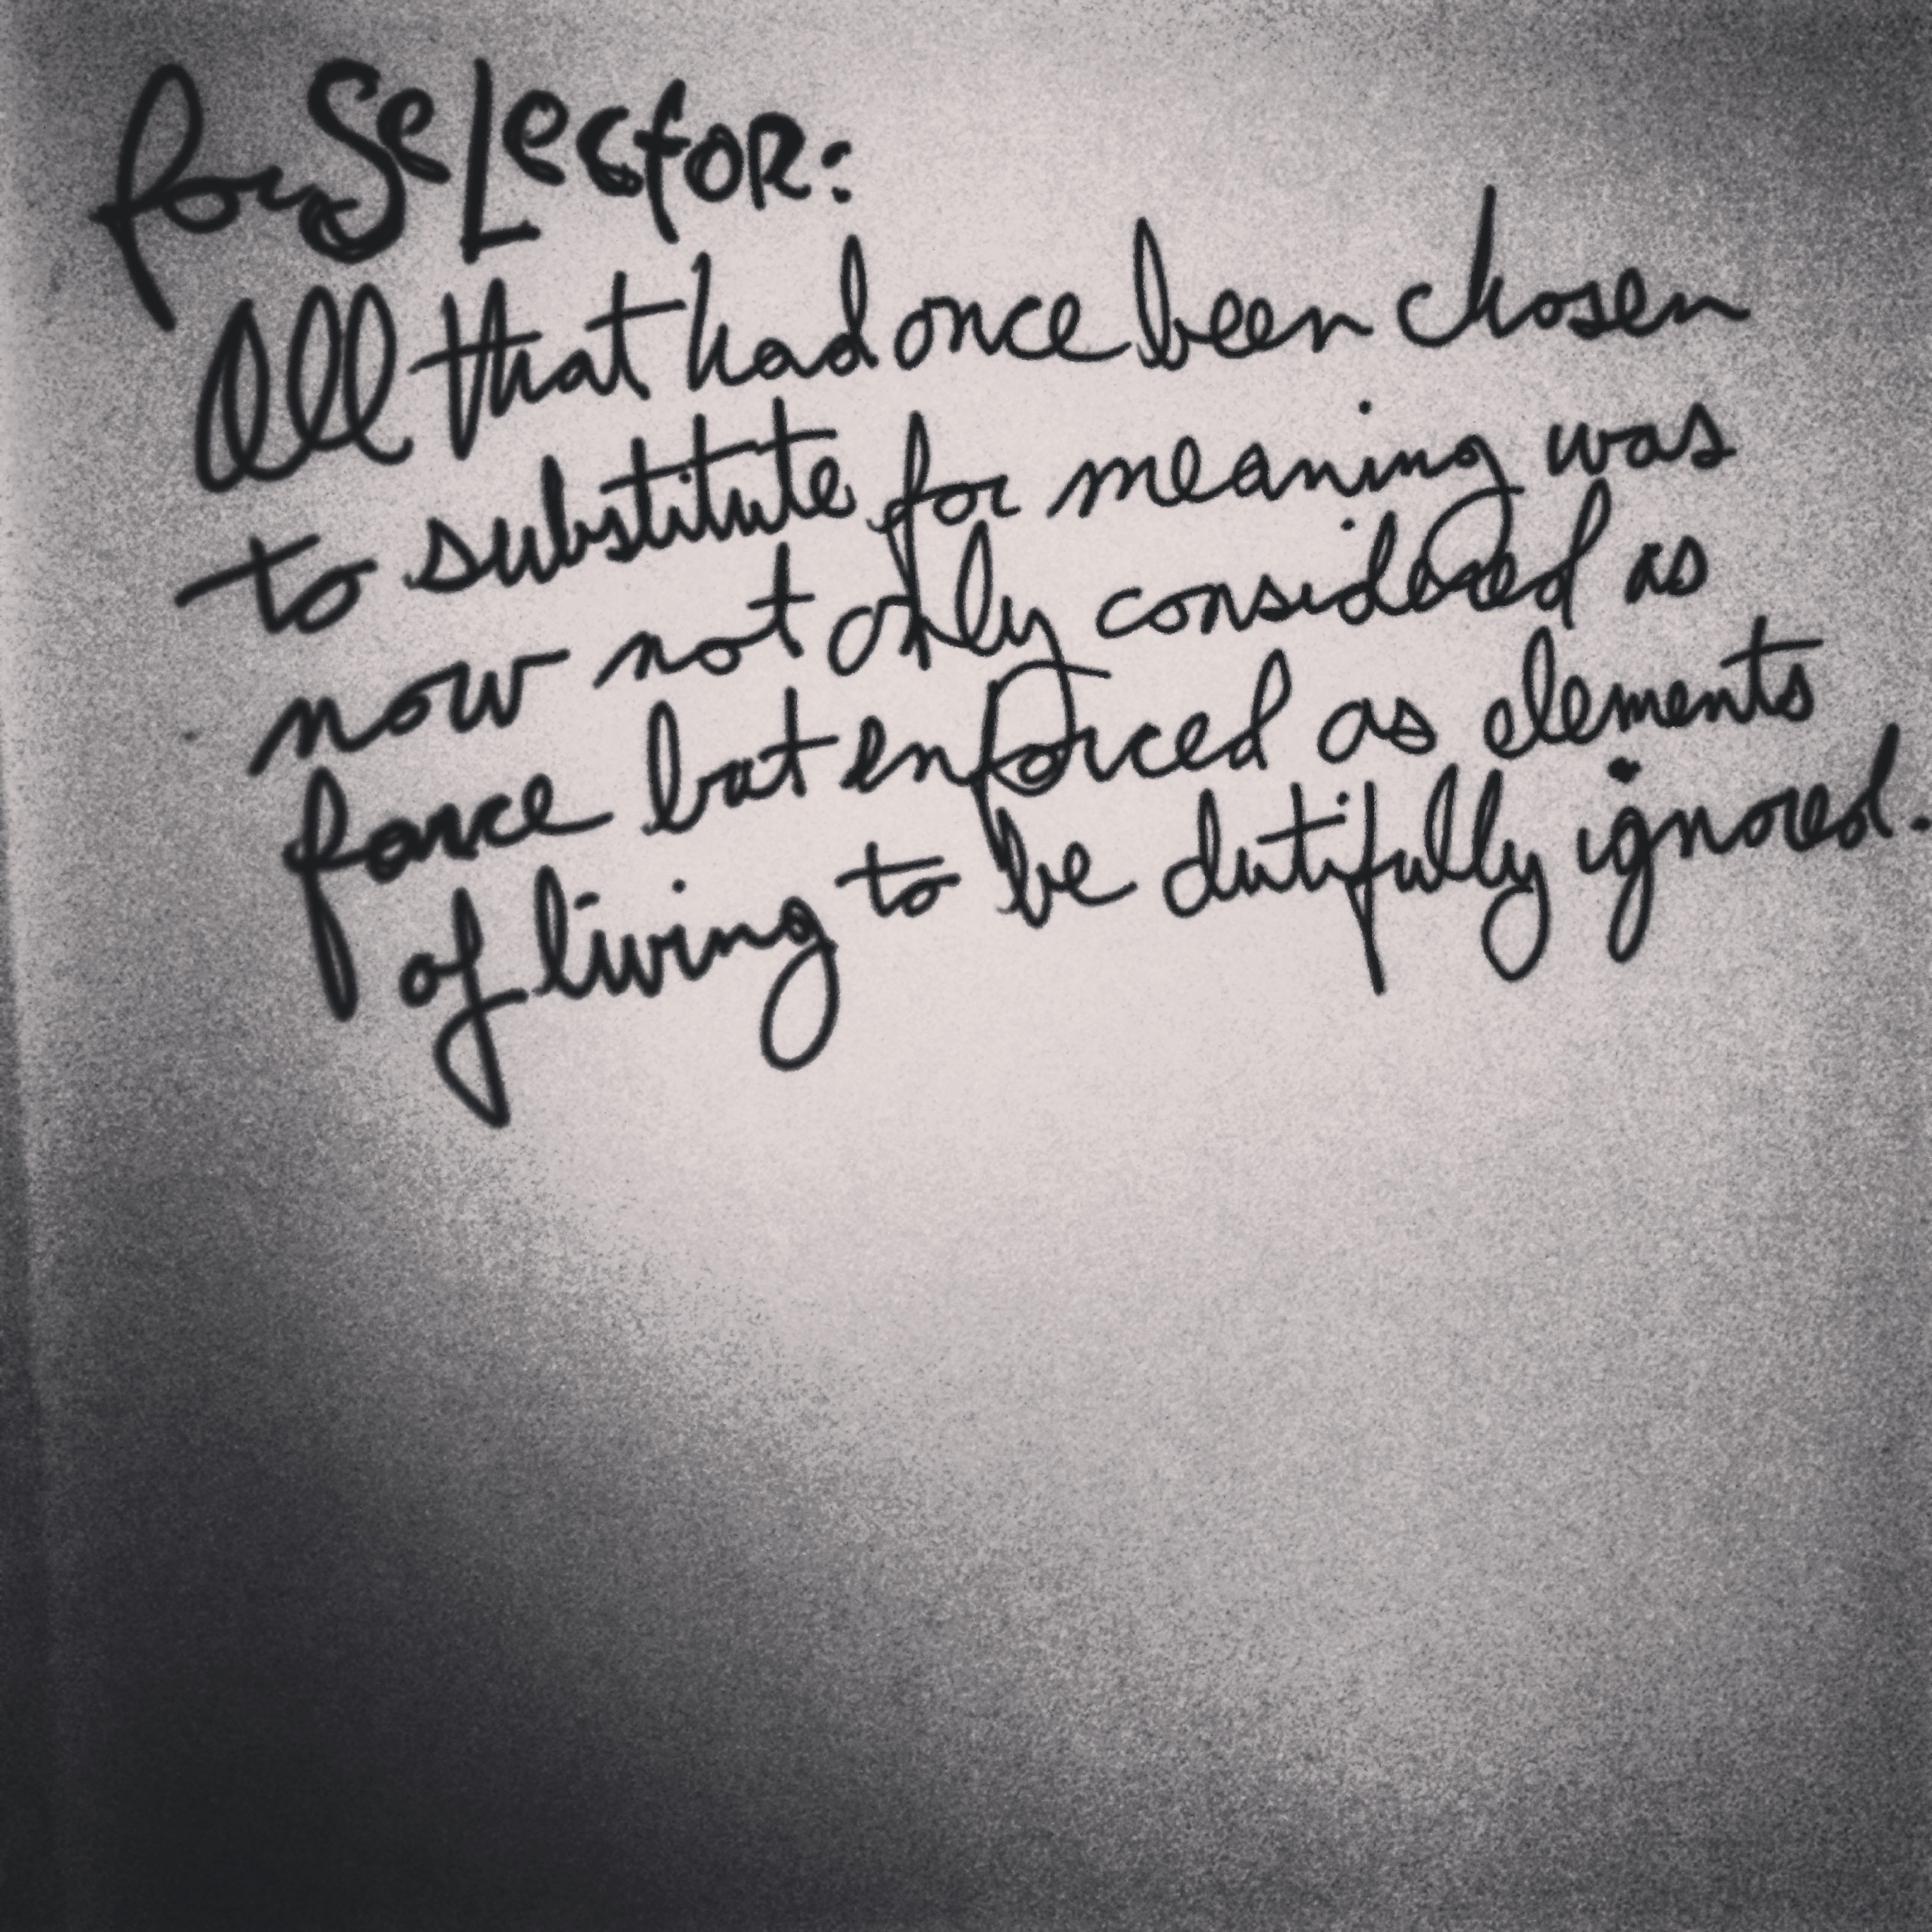 for SeLectoR:
All that had once been chosen
to substitute for meaning was
now not only considered as
farce but enforced as elements
of living to be dutifully ignored.